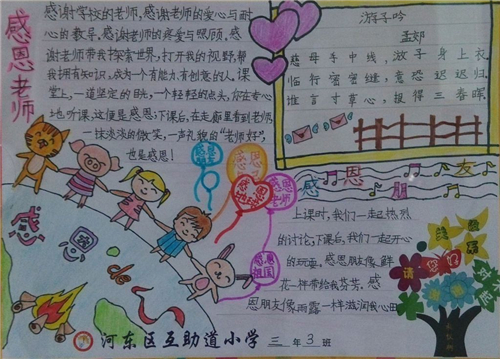 感恩老师
感谢学校的老师,感谢老师的爱心与耐
心的教导,感谢老师的疼爱与照顾,感
谢老师带我探索世界,打开我的视野,帮
我拥有知识,成为一个有能力有创意的人。课
堂上,一道坚定的目光,一个轻轻的点头,你在专心
地听课,这便是感恩;下课后,在走廊里看到老师,
一抹淡淡的微笑,一声礼貌的“老师好”,
也是感恩!
游子吟
孟郊
慈母手中线,游子身上衣
临行密密缝,意恐迟迟归
谁言寸草心,报得三春晖
感恩朋友
上课时,我们一起热烈
的讨论;下课后,我们一起开心
的玩耍,感恩朋友像鲜
花一样带给我芬芳,感
恩朋友像雨露一样滋润我心田
感恩老师
感恩祖国
感恩的心
请
您好
谢谢
对不起
河东区互助道小学 三年3班